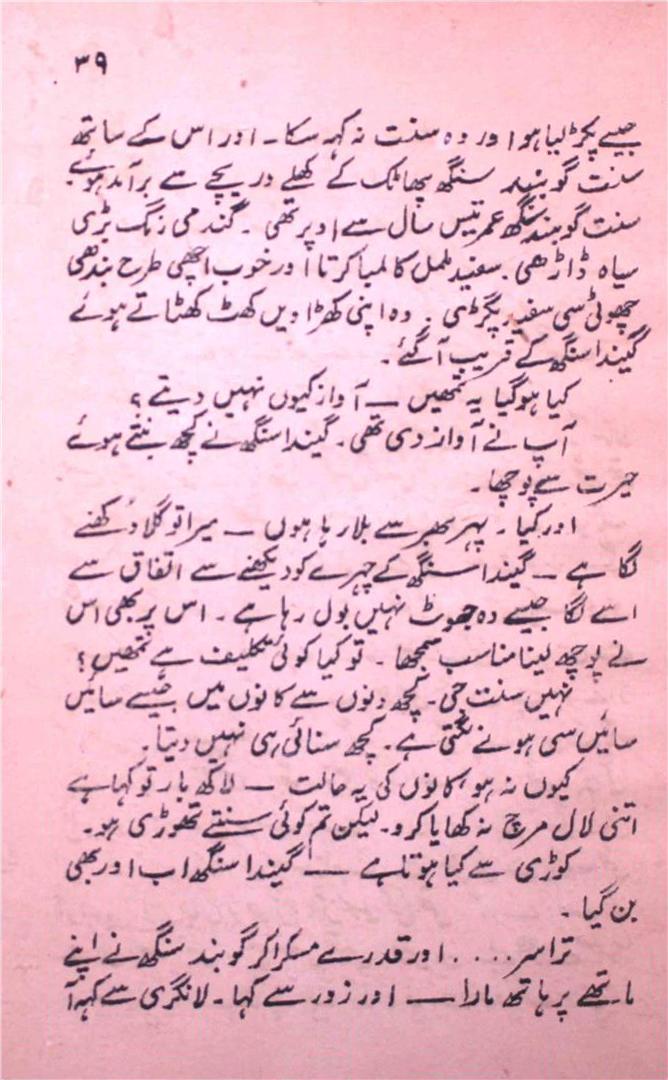 ۳۹
جیسے پکڑ لیا ہو اور وہ سنت نہ کہہ سکا ۔ اور اس کے ساتھ
سنت گوبند سنگھ پھاٹک کے کھلے دریچے سے برآمد ہوئے ۔
سنت گوبند سنگھ عمر تیس سال سے اوپر تھی ۔ گندمی رنگ بڑی
سیاہ ڈاڑھی ۔ سفید ململ کا لمبا کرتا اور خوب اچھی طرح بندھی
چھوٹی سی سفید پگڑی ۔ وہ اپنی کھڑاویں کھٹ کھٹاتے ہوئے
گیندا سنگھ کے قریب آ گئے ۔
کیا ہو گیا یہ تمھیں ــ آواز کیوں نہیں دیتے ؟
آپ نے آواز دی تھی ۔ گیندا سنگھ نے کچھ بنتے ہوئے
حیرت سے پوچھا ۔
اور کیا ۔ پہر بھر سے بلا رہا ہوں ــ میرا تو گلا دکھنے
لگا ہے ــ گیندا سنگھ کے چہرے کو دیکھنے سے اتفاق سے
اسے لگا جیسے وہ جھوٹ نہیں بول رہا ہے ۔ اس پر بھی اس
نے پوچھ لینا مناسب سمجھا ۔ تو کیا کوئی تکلیف ہے تمھیں ؟
نہیں سنت جی ۔ کچھ دنوں سے کانوں میں جیسے سائیں
سائیں سی ہونے لگتی ہے ۔ کچھ سنائی ہی نہیں دیتا ۔
کیوں نہ ہو کانوں کی یہ حالت ــ لاکھ بار تو کہا ہے
اتنی لال مرچ نہ کھایا کرو ۔ لیکن تم کوئی سنتے تھوڑی ہو ۔
کوڑی سے کیا ہوتا ہے ــ گیندا سنگھ اب اور بھی
بن گیا ۔
تراسر .... اور قدرے مسکرا کر گوبند سنگھ نے اپنے
ماتھے پر ہاتھ مارا ــ اور زور سے کہا ۔ لانگری سے کہہ آ